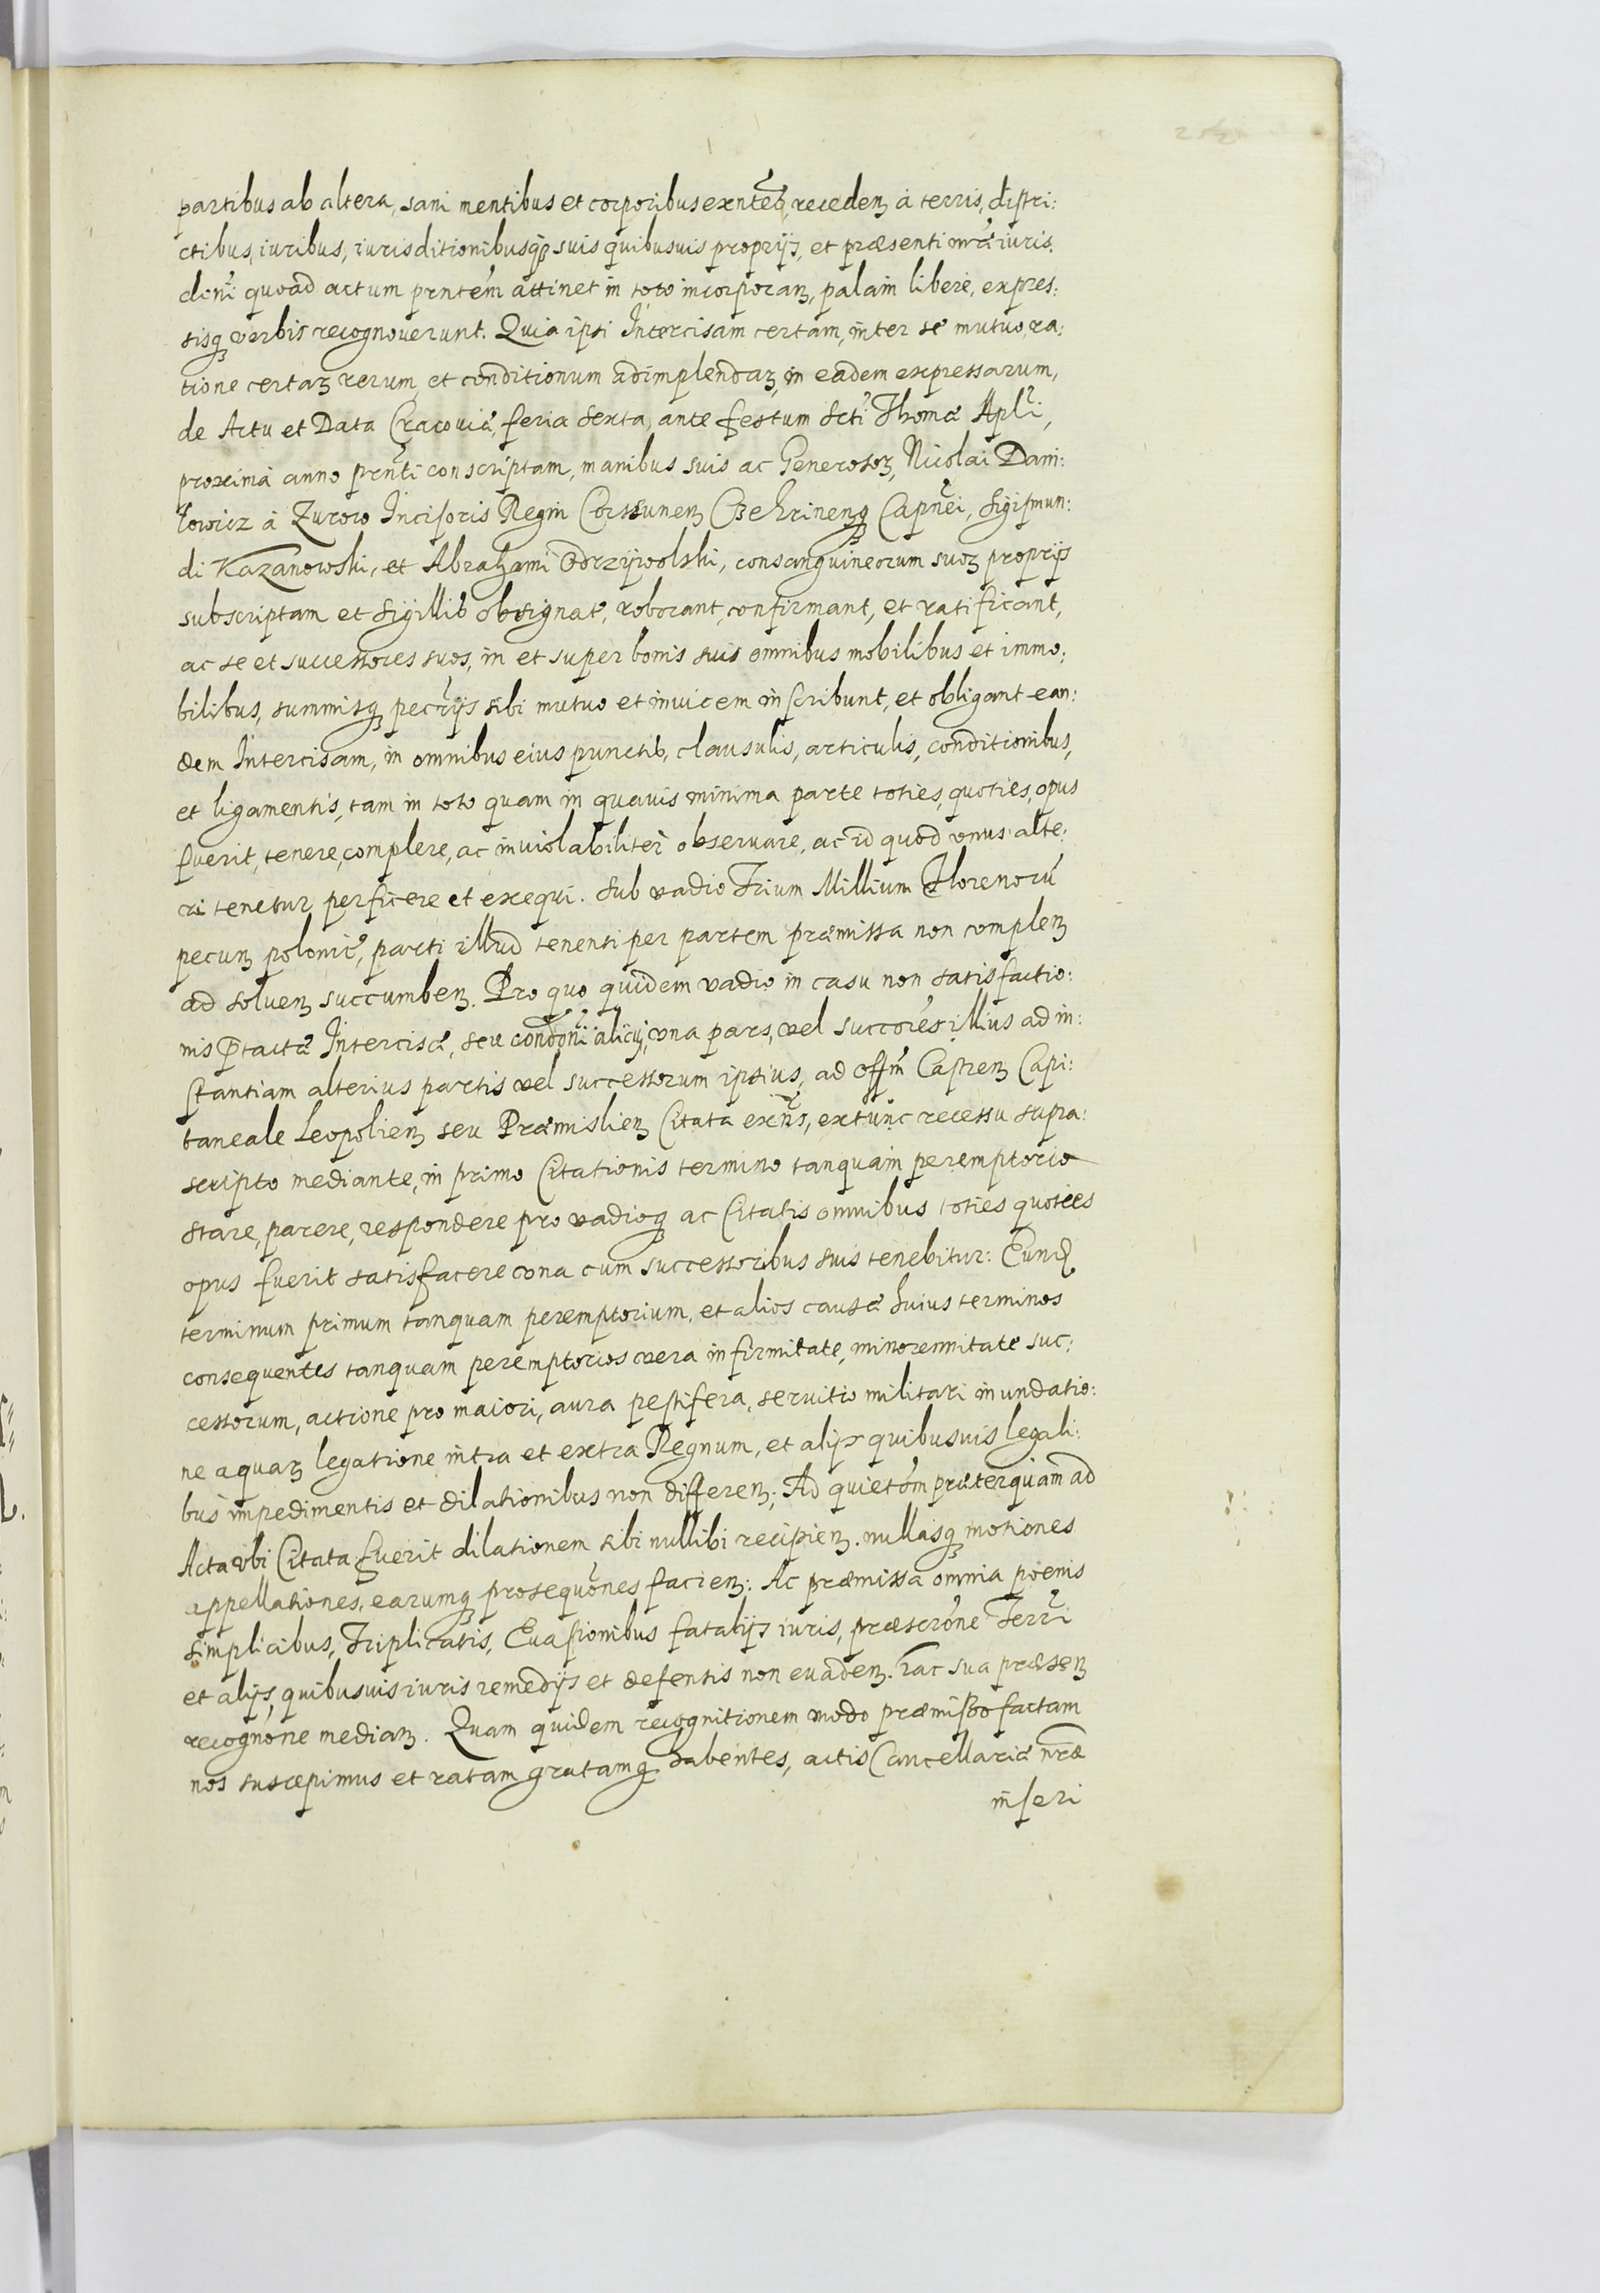 partibus ab altera, sani mentibus et corporibus exntes, receden à terris, distri:
ctibus, iuribus, iurisditionibusq suis quibusuis proprijs, et præsenti nræ iuris:
dcni quoad actum prntem attinet in toto incorporan, palam libere, expres:
sisq verbis recognouerunt. Quia ipsi Intercisam certam, inter se mutuo, ra:
tione certaʒ rerum et conditionum adimplendaʒ, in eadem expressarum,
de Actu et Data Cracouiæ, feria sexta, ante festum Scti Thomæ Apli,
proxima anno prnti conscriptam, manibus suis ac Generosoʒ, Nicolai Dani:
lowicz à Zurow Incisoris Regni Corssunen Czehrinenq Capnei, Sigismun:
di Kazanowski, et Abrahami Odrzywolski, consanguineorum suoʒ proprijs
subscriptam et sigillis obsignatã, roborant, confirmant, et ratificant,
ac se et successores suos, in et super bonis suis omnibus mobilibus et immo:
bilibus, summisq pecrijs sibi mutuo et inuicem inscribunt, et obligant ean:
dem Intercisam, in omnibus eius punctis, clausulis, articulis, conditionibus,
et ligamentis, tam in toto quam in quauis minima parte toties, quoties, opus
fuerit, tenere, complere, ac inuiolabiliter obseruare, ac id quod vnus alte:
ri tenetur perficere et exequi. Sub vadio Trium Millium Florenorũ
pecun polonicæ, parti illud tenenti per partem præmissa non complen
ad soluen succumben. Pro quo quidem vadio in casu non satisfactio:
nis Ptactæ Intercisæ, seu condoni alicuj, vna pars, vel succores illius ad in:
stantiam alterius partis vel successorum ipsius, ad offm Castren Capi:
taneale Leopolien seu Præmislien Citata exns, extunc recessu supra:
scripto mediante, in primo Citationis termino tanquam peremptorio
stare, parere, respondere pro vadioq ac Citatis omnibus toties quoties
opus fuerit satisfacere vna cum successoribus suis tenebitur: Eund
terminum primum tanquam peremptorium, et alios causæ huius terminos
consequentes tanquam peremptorios vera infirmitate, minorennitate suc:
cessorum, actione pro maiori, aura pestifera, seruitio militari inundatio:
ne aquaʒ legatione intra et extra Regnum, et alijs quibusuis legali:
bus impedimentis et dilationibus non differen; Ad quietom præterquam ad
Acta vbi Citata fuerit dilationem sibi nullibi recipien. nullasq motiones
appellationes, earumq prosequones facien: Ac præmissa omnia pœnis
simplicibus, Triplicatis, Euasionibus fatalijs iuris, præscrone Terri
et alijs, quibusuis iuris remedijs et defensis non euaden. hac sua præsen
recognone median. Quam quidem recognitionem modo præmisso factam
nos suscepimus et ratam gratamq habentes, actis Cancellariæ nræ
inseri